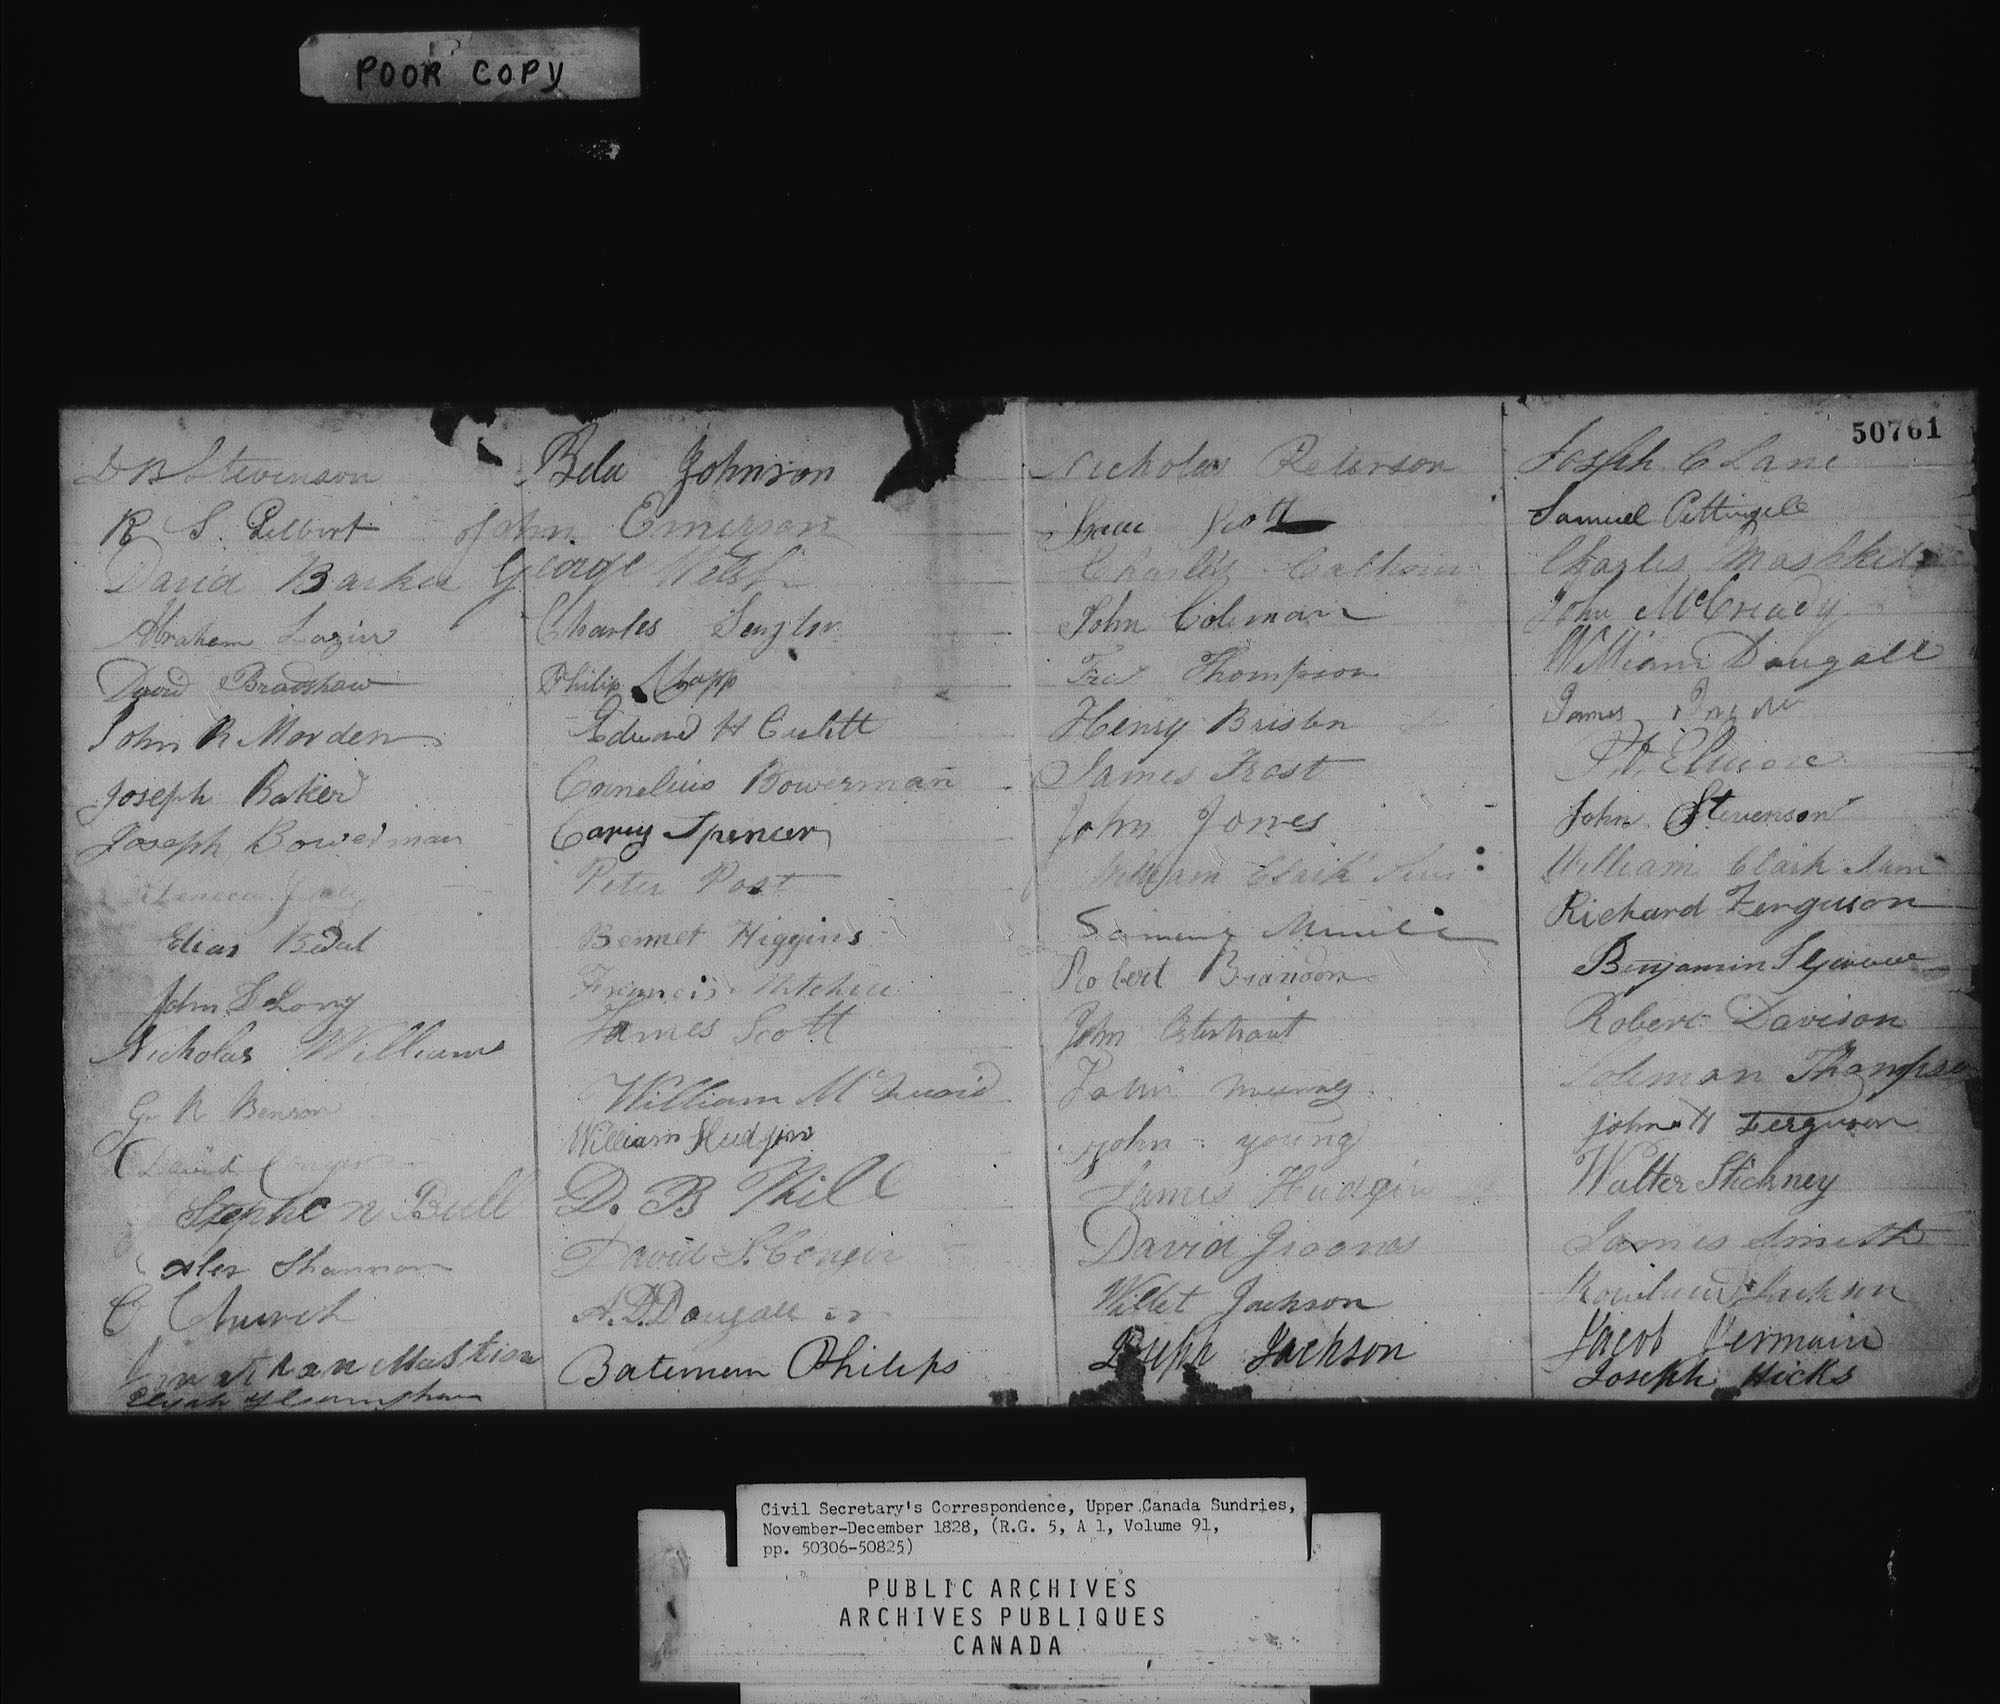 POOR COPY
50761
D B Stevenson
R S. Gilbert
David Barker
Abraham Lazier
David Bradshaw
John R Morden
Joseph Baker
Joseph Bowerman
Elias
John S Long
Nicholas Williams
G. R Benson
David Conger
Stephen Bull
Alex Shannon
C Church
Jonathan Mastion
Elijah
Bela Johnson
John Emerson
George Welsh
Charles
Philip Clapp
Edward H
Cornelius Bowerman
Carey Spencer
Peter Post
Bennet Higgins
Francis Mitchell
James Scott
William McQuoid
William Hudgin
D. B Hill
David S. Conger
A. D. Dougall
Bateman Philips
Nicholas Peterson
Isaac Scott
Charles Calhoun
John Coleman
Thompson
Henry Brisbn
James Frost
John Jones
William Clark
Robert Brandon
John
John Murney
John young
James Hudgin
David Grooms
Willet Jackson
Joseph Jackson
Joseph C Lane
Samuel Pettingell
Charles
John McCready
William Dougall
James
John Stevenson
William Clark Jun
Richard Ferguson
Benjamin
Robert Davison
Solomon Thompson
John H Ferguson
Walter Stickney
James Smith
Rowland Jackson
Jacob Germain
Joseph Hicks
Civil Secretary's Correspondence, Upper Canada Sundries,
November-December 1828, (R.G. 5, A 1, Volume 91,
pp. 50306-50825)
PUBLIC ARCHIVES
ARCHIVES PUBLIQUES
CANADA